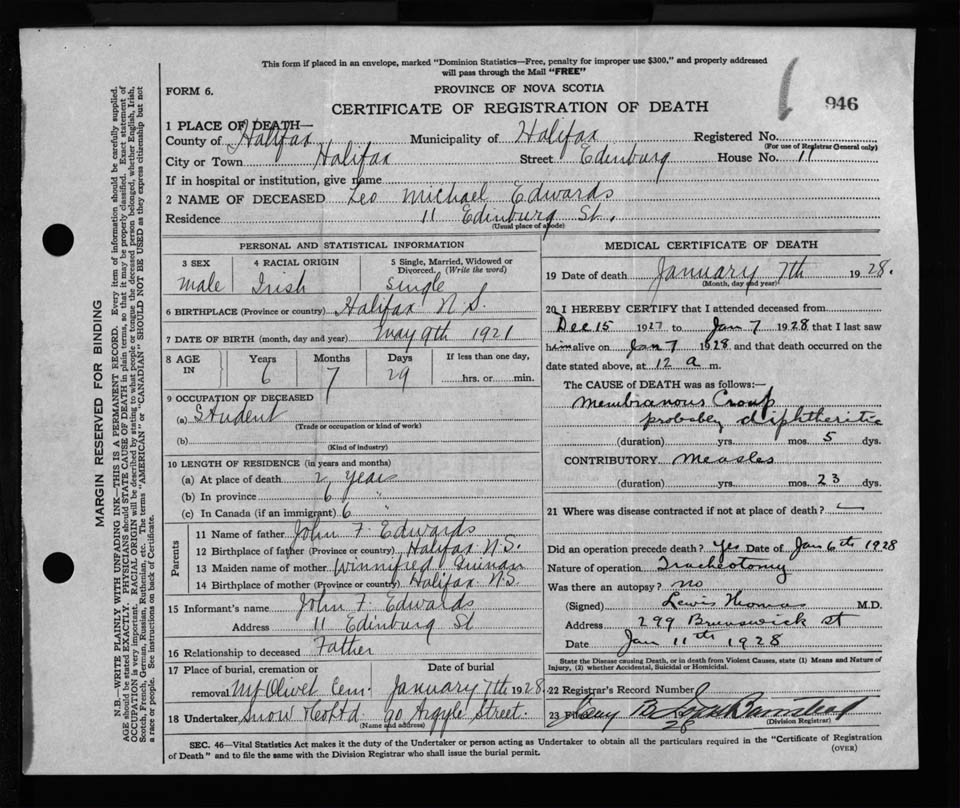 This form if placed in an envelope, marked "Dominion Statistics—Free, penalty for improper use $300," and properly addressed
will pass through the Mail "FREE"
FORM 6.
PROVINCE OF NOVA SCOTIA
CERTIFICATE OF REGISTRATION OF DEATH
946
1 PLACE OF DEATH—
County of Halifax Municipality of Halifax Registered No.
(For use of Registrar General only)
City or Town Halifax Street Edenburg House No. 11
If in hospital or institution, give name
2 NAME OF DECEASED Leo Michael Edwards
Residence 11 Edinburg St.
(Usual place of abode)
PERSONAL AND STATISTICAL INFORMATION
3 SEX 4 RACIAL ORIGIN 5 Single, Married, Widowed or Divorced. (Write the word)
male Irish Single
6 BIRTHPLACE (Province or country) Halifax N.S.
7 DATE OF BIRTH (month, day and year) May 9th 1921
8 AGE IN Years Months Days If less than one day,
6 7 29 hrs. or min.
9 OCCUPATION OF DECEASED
(a) Student
(Trade or occupation or kind of work)
(b)
(Kind of industry)
10 LENGTH OF RESIDENCE (in years and months)
(a) At place of death 2 years
(b) In province 6 "
(c) In Canada (if an immigrant) 6
Parents
11 Name of father John F. Edwards
12 Birthplace of father (Province or country) Halifax N.S.
13 Maiden name of mother Winnifred
14 Birthplace of mother (Province or country) Halifax N.S.
15 Informant's name John F. Edwards
Address 11 Edinburg St
16 Relationship to deceased Father
17 Place of burial, cremation or Date of burial
removal Mt Olivet Cem. January 7th 1928
18 Undertaker Snow & Co Ltd 90 Argyle Street.
(Name and address)
MEDICAL CERTIFICATE OF DEATH
19 Date of death January 7th 1928.
(Month, day and year)
20 I HEREBY CERTIFY that I attended deceased from
Dec 15 1927 to Jan 7 1928 that I last saw
him alive on Jan 7 1928 and that death occurred on the
date stated above, at 12 a m.
The CAUSE OF DEATH was as follows:—
Membranous Croup
probabey diphtheritic
(duration) yrs. mos. 5 dys.
CONTRIBUTORY measles
(duration) yrs. mos. 23 dys.
21 Where was disease contracted if not at place of death?
Did an operation precede death? yes Date of Jan 6th 1928
Nature of operation Tracheotomy
Was there an autopsy? no
(Signed) Lewis Thomas M.D.
Address 299 Brunswick st
Date Jan 11th 1928
State the Disease causing Death, or in death from Violent Causes, state (1) Means and Nature of
Injury, (2) whether Accidental, Suicidal or Homicidal.
22 Registrar's Record Number
23 Filed
28
(Division Registrar)
SEC. 46—Vital Statistics Act makes it the duty of the Undertaker or person acting as Undertaker to obtain all the particulars required in the "Certificate of Registration
of Death" and to file the same with the Division Registrar who shall issue the burial permit.
(OVER)
MARGIN RESERVED FOR BINDING
N.B.—WRITE PLAINLY WITH UNFADING INK—THIS IS A PERMANENT RECORD. Every item of information should be carefully supplied.
AGE should be stated EXACTLY. PHYSICIANS should STATE CAUSE OF DEATH in plain terms, so that it may be properly classified. Exact statement of
OCCUPATION is very important. RACIAL ORIGIN will be described by stating to what people or tongue the deceased person belonged, whether English, Irish,
Scotch, French, German, Russian, Ruthenian, etc. The terms "AMERICAN" or "CANADIAN" SHOULD NOT BE USED as they express citizenship but not
a race or people. See instructions on back of Certificate.